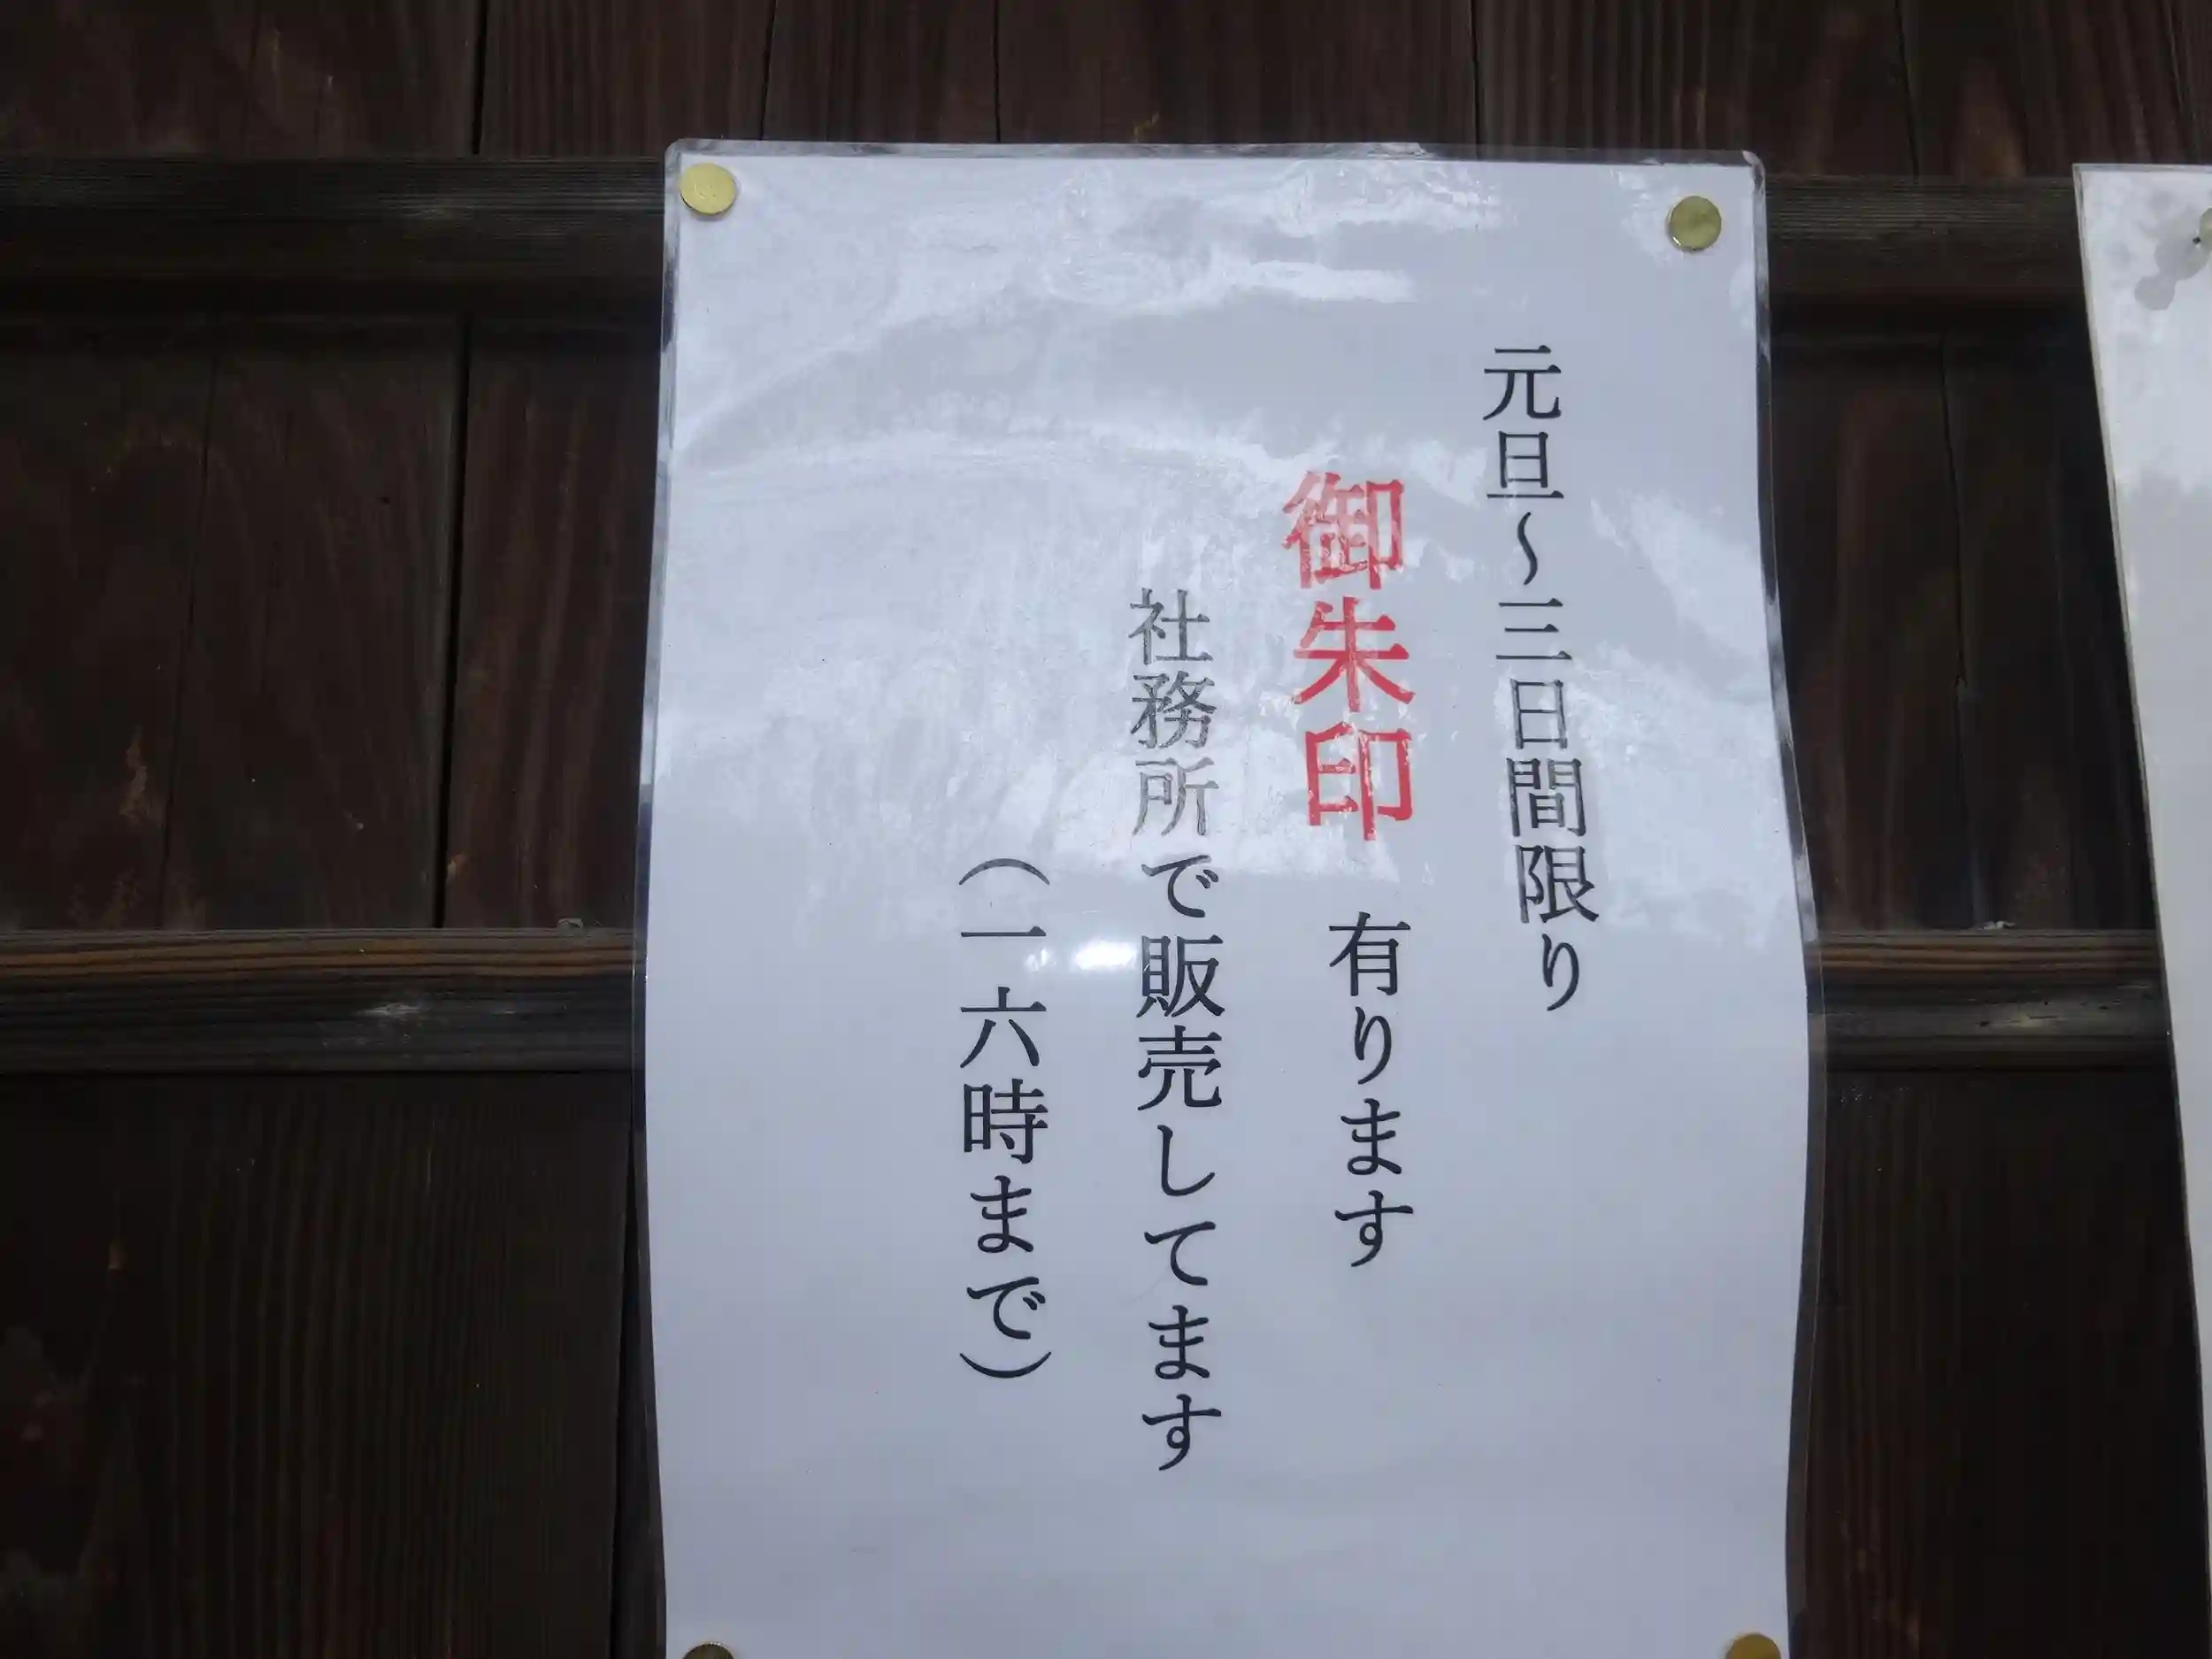 元旦〜三日間限り
御朱印 有ります
社務所で販売してます
（一六時まで）